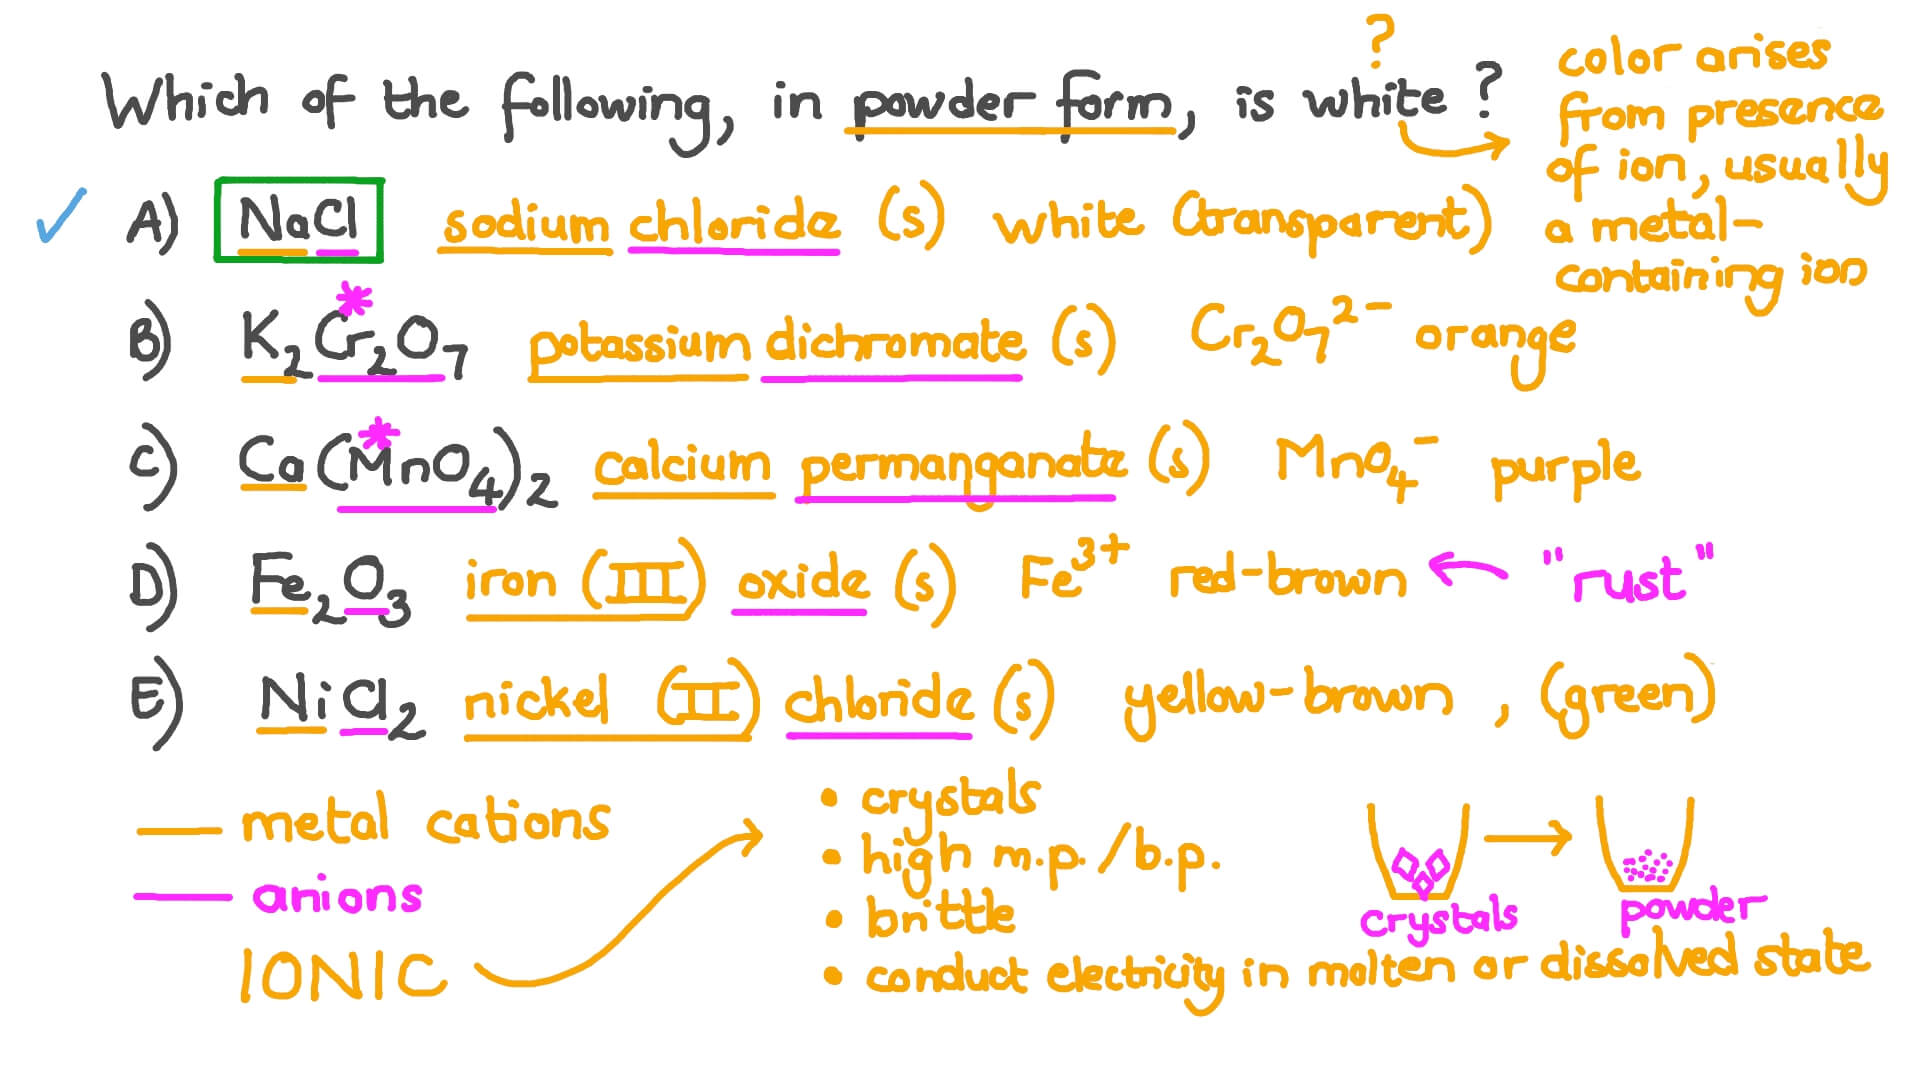 Which of the following, in powder form, is white?
?
color arises
from presence
of ion, usually
a metal-
containing ion
✓ A) NaCl sodium chloride (s) white (transparent)
B) K₂Cr₂O₇ potassium dichromate (s) Cr₂O₇²⁻ orange
*
C) Ca(MnO₄)₂ calcium permanganate (s) MnO₄⁻ purple
*
D) Fe₂O₃ iron (III) oxide (s) Fe³⁺ red-brown ← "rust"
E) NiCl₂ nickel (II) chloride (s) yellow-brown, (green)
— metal cations
— anions
IONIC →
• crystals
• high m.p./b.p.
• brittle
• conduct electricity in molten or dissolved state
crystals → powder